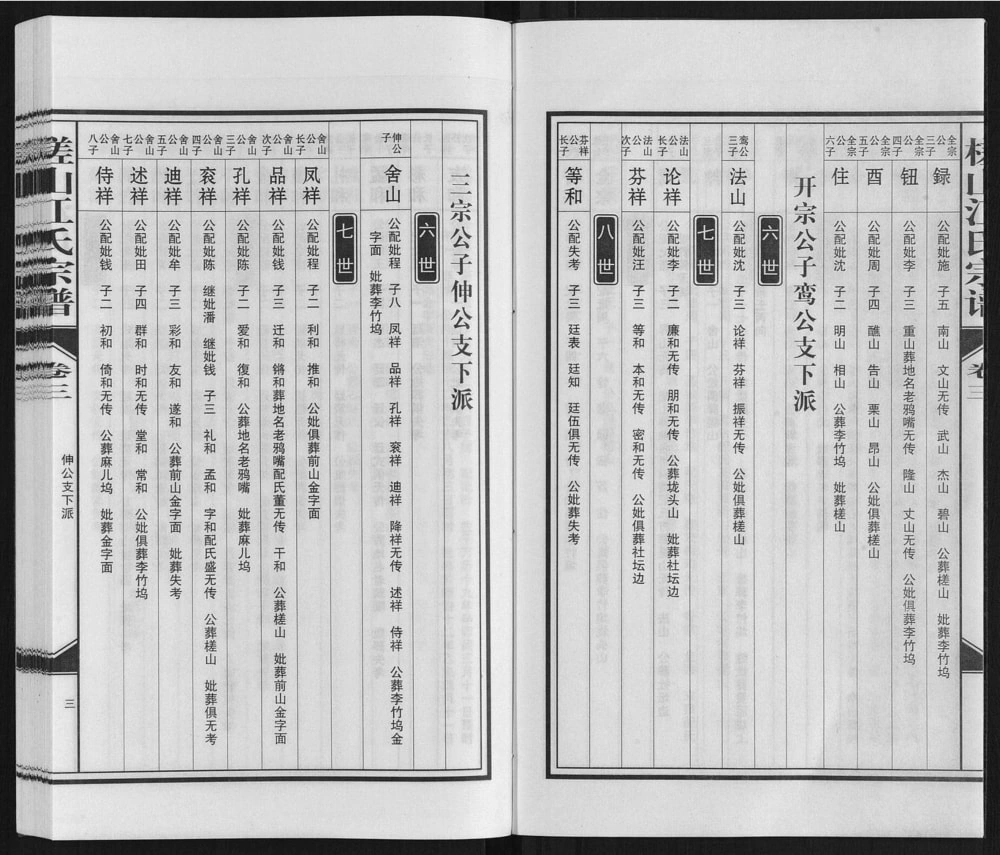 槎山江氏宗谱
卷三
全宗公三子
録
公配妣施 子五 南山 文山无传 武山 杰山 碧山 公葬槎山 妣葬李竹坞
全宗公四子
钮
公配妣李 子三 重山葬地名老鸦嘴无传 隆山 丈山无传 公妣俱葬李竹坞
全宗公五子
酉
公配妣周 子四 醮山 告山 栗山 昂山 公妣俱葬槎山
全宗公六子
住
公配妣沈 子二 明山 相山 公葬李竹坞 妣葬槎山
开宗公子鸾公支下派
六世
鸾公三子
法山
公配妣沈 子三 论祥 芬祥 振祥无传 公妣俱葬槎山
七世
法山公长子
论祥
公配妣李 子二 廉和无传 朋和无传 公葬垅头山 妣葬社坛边
法山公次子
芬祥
公配妣汪 子三 等和 本和无传 密和无传 公妣俱葬社坛边
八世
芬祥公长子
等和
公配失考 子三 廷表 廷知 廷伍俱无传 公妣葬失考
三宗公子伸公支下派
六世
伸公子
舍山
公配妣程 子八 凤祥 品祥 孔祥 衮祥 迪祥 降祥无传 述祥 侍祥 公葬李竹坞金
字面 妣葬李竹坞
七世
舍山公长子
凤祥
公配妣程 子二 利和 推和 公妣俱葬前山金字面
舍山公次子
品祥
公配妣钱 子三 迁和 锵和葬地名老鸦嘴配氏董无传 干和 公葬槎山 妣葬前山金字面
舍山公三子
孔祥
公配妣陈 子二 爱和 復和 公葬地名老鸦嘴 妣葬麻儿坞
舍山公四子
衮祥
公配妣陈 继妣潘 继妣钱 子三 礼和 孟和 字和配氏盛无传 公葬槎山 妣葬俱无考
舍山公五子
迪祥
公配妣牟 子三 彩和 友和 遂和 公葬前山金字面 妣葬失考
舍山公七子
述祥
公配妣田 子四 群和 时和无传 堂和 常和 公妣俱葬李竹坞
舍山公八子
侍祥
公配妣钱 子二 初和 倚和无传 公葬麻儿坞 妣葬金字面
槎山江氏宗谱
卷三
伸公支下派
三